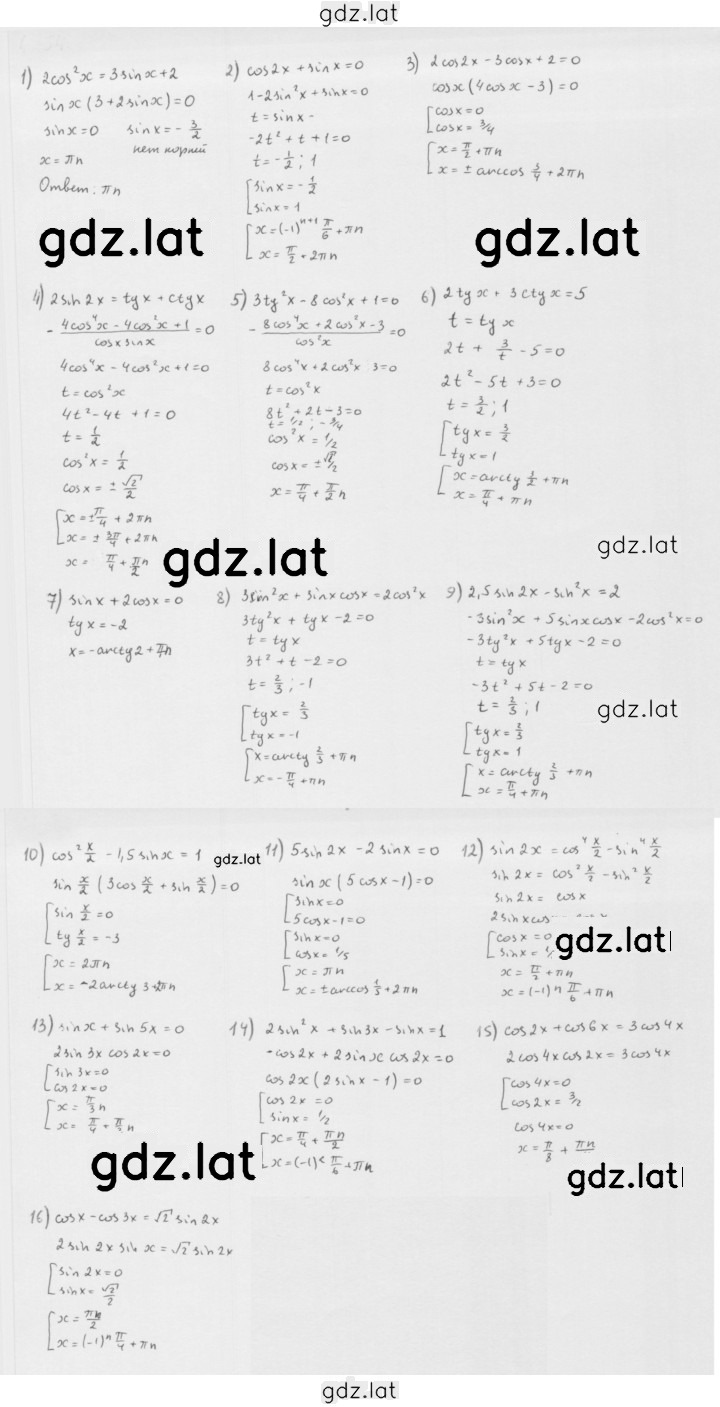 gdz.lat
1) 2cos²x = 3sinx + 2
sinx(3 + 2sinx) = 0
sinx = 0 sinx = -3/2
нет корней
x = πn
Ответ: πn
2) cos2x + sinx = 0
1 - 2sin²x + sinx = 0
t = sinx -
-2t² + t + 1 = 0
t = -1/2; 1
[sinx = -1/2
sinx = 1
[x = (-1)ⁿ⁺¹ π/6 + πn
x = π/2 + 2πn
3) 2cos2x - 3cosx + 2 = 0
cosx(4cosx - 3) = 0
[cosx = 0
cosx = 3/4
[x = π/2 + πn
x = ± arccos 3/4 + 2πn
gdz.lat
gdz.lat
4) 2sin2x = tgx + ctgx
- (4cos⁴x - 4cos²x + 1)/(cosx sinx) = 0
4cos⁴x - 4cos²x + 1 = 0
t = cos²x
4t² - 4t + 1 = 0
t = 1/2
cos²x = 1/2
cosx = ± √2/2
[x = ± π/4 + 2πn
x = ± 3π/4 + 2πn
x = π/4 + π/2 n
5) 3tg²x - 8cos²x + 1 = 0
- (8cos⁴x + 2cos²x - 3)/cos²x = 0
8cos⁴x + 2cos²x 3 = 0
t = cos²x
8t² + 2t - 3 = 0
t = 1/2; -3/4
cos²x = 1/2
cosx = ± √2/2
x = π/4 + π/2 n
6) 2tgx + 3ctgx = 5
t = tgx
2t + 3/t - 5 = 0
2t² - 5t + 3 = 0
t = 3/2; 1
[tgx = 3/2
tgx = 1
[x = arctg 3/2 + πn
x = π/4 + πn
gdz.lat
gdz.lat
7) sinx + 2cosx = 0
tgx = -2
x = -arctg2 + πn
8) 3sin²x + sinxcosx = 2cos²x
3tg²x + tgx - 2 = 0
t = tgx
3t² + t - 2 = 0
t = 2/3; -1
[tgx = 2/3
tgx = -1
[x = arctg 2/3 + πn
x = -π/4 + πn
9) 2,5sin2x - sin²x = 2
-3sin²x + 5sinxcosx - 2cos²x = 0
-3tg²x + 5tgx - 2 = 0
t = tgx
-3t² + 5t - 2 = 0
t = 2/3; 1
[tgx = 2/3
tgx = 1
[x = arctg 2/3 + πn
x = π/4 + πn
gdz.lat
10) cos² x/2 - 1,5sinx = 1
sin x/2 (3cos x/2 + sin x/2) = 0
[sin x/2 = 0
tg x/2 = -3
[x = 2πn
x = -2arctg3 + 2πn
gdz.lat
11) 5sin2x - 2sinx = 0
sinx(5cosx - 1) = 0
[sinx = 0
5cosx - 1 = 0
[sinx = 0
cosx = 1/5
[x = πn
x = ± arccos 1/5 + 2πn
12) sin2x = cos⁴ x/2 - sin⁴ x/2
sin2x = cos² x/2 - sin² x/2
sin2x = cosx
2sinxcos
[cosx = 0
sinx = 1/
x = π/2 + πn
x = (-1)ⁿ π/6 + πn
gdz.lat
13) sinx + sin5x = 0
2sin3x cos2x = 0
[sin3x = 0
cos2x = 0
[x = π/3 n
x = π/4 + π/2 n
14) 2sin²x + sin3x - sinx = 1
-cos2x + 2sinx cos2x = 0
cos2x(2sinx - 1) = 0
[cos2x = 0
sinx = 1/2
[x = π/4 + πn/2
x = (-1)ᵏ π/6 + πn
15) cos2x + cos6x = 3cos4x
2cos4xcos2x = 3cos4x
[cos4x = 0
cos2x = 3/2
cos4x = 0
x = π/8 + πn
gdz.lat
gdz.lat
16) cosx - cos3x = √2 sin2x
2sin2x sinx = √2 sin2x
[sin2x = 0
sinx = √2/2
[x = πn/2
x = (-1)ⁿ π/4 + πn
gdz.lat